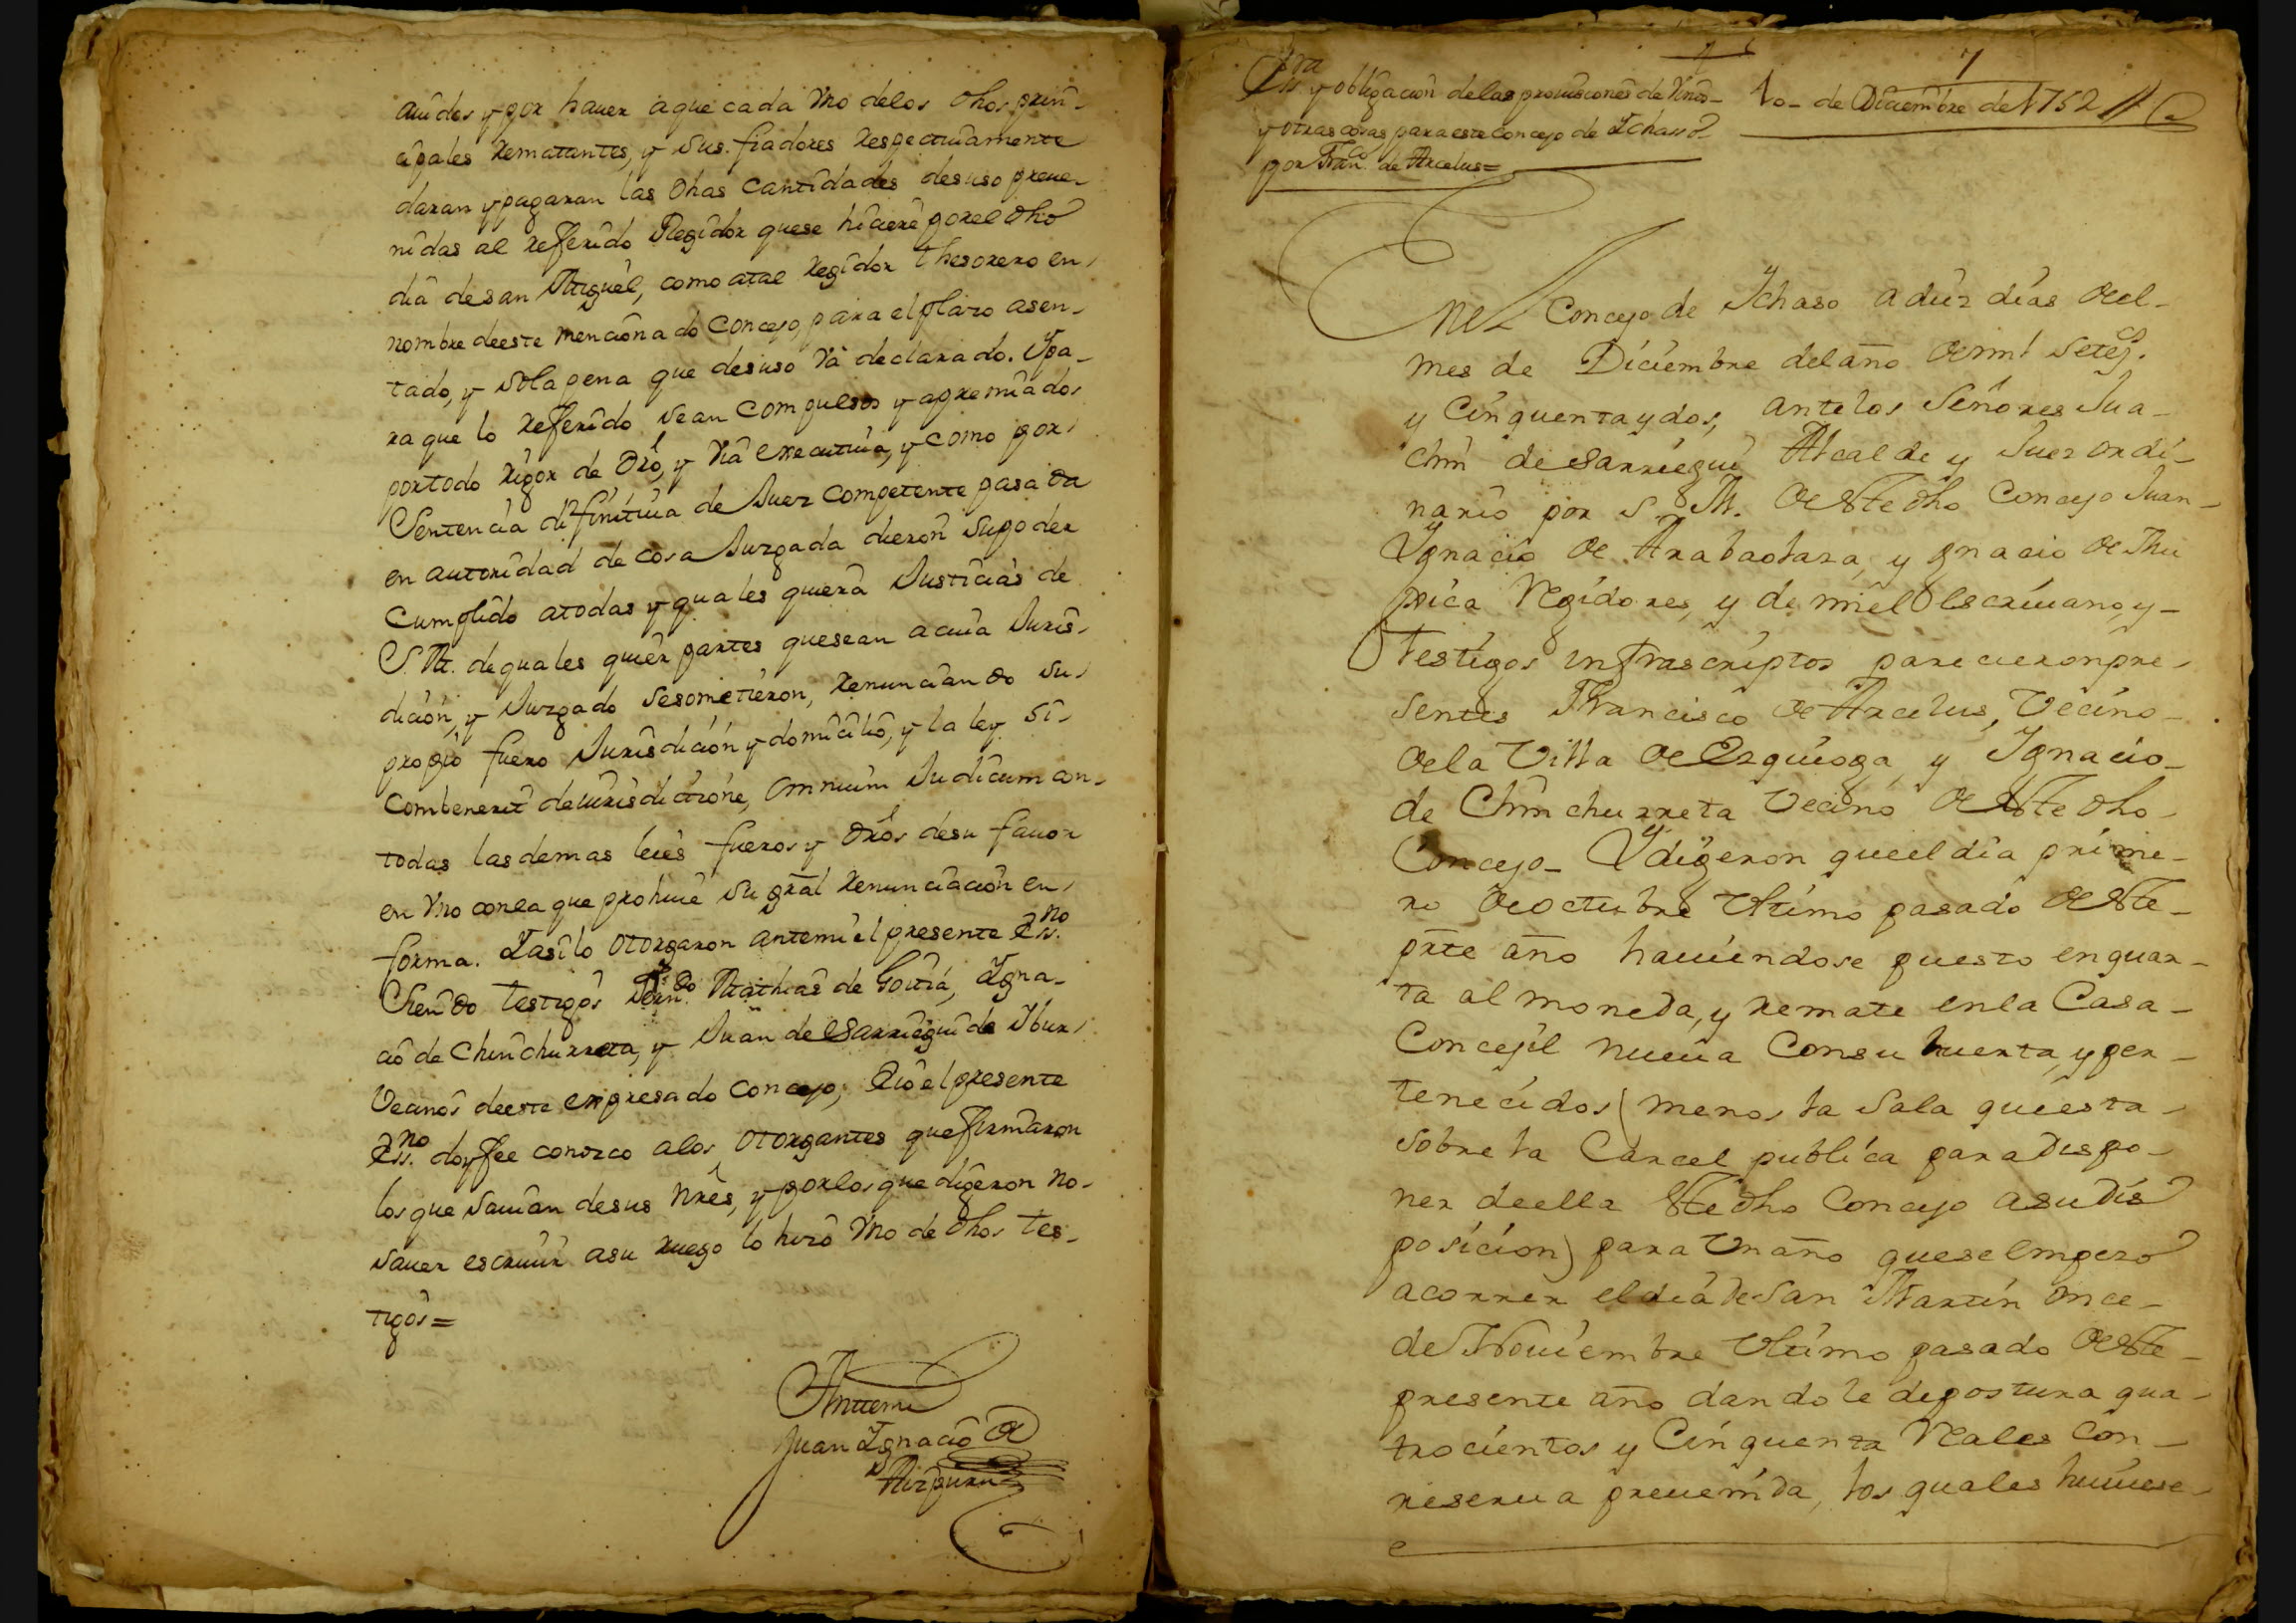 auidos y por hauer aque cada Vno delos dhos prin-
cipales Rematantes, y sus fiadores Respectiuamente
daran y pagaran las dhas cantidades desuso preue-
nidas al refferido Regidor quese hiciere por el dho
dia desan Miguel, como atal Regidor thesorero en
nombre deeste mencionado Concejo, para el plazo asen-
tado, y sola pena que desuso Va declarado. Ypa-
raque lo refferido sean compulsos y apremiados
portodo Rigor de Dró, y Via executiua, y como por
Sentencia difinitiua de Juez Competente pasada
en autoridad de cosa Juzgada dieron supoder
Cumplido atodas y quales quiera Justicias de
S. M. de quales quier partes quesean acuia Juris-
dicion, y Juzgado sesometieron, Renunciando su
propio fuero Jurisdicion y domicilio, y la ley si
combenerit deiurisdictione, omnium Judicum con
todas lasdemas leies fueros y Drós desu fauor
en Vno conla que prohiue su gral Renunciacion en
forma. Yasilo otorgaron antemi el presente Essno.
Siendo testigos Mathias de Goitia, Ygna-
cio de Chinchurreta, y Juan de Esarriegui de Ybur
Vecinos deeste expresado Concejo; Eio el presente
Essno. doyfee conozco alos otorgantes quefirmaron
los que sauian desus Nres, y porlos que digeron No
sauer escriuir asu Ruego lo hizo Vno de dhos tes-
tigos=
Anttemi
Juan Ygnacio de
Aizpuru
7
Essra y obligacion delas prouisiones de Vino
y otras cosas para este Concejo de Ychaso
por Franco. de Arcelus=
10- de Diciembre de 1752
Enel Concejo de Ychaso adiez dias del
mes de Diciembre del año de mil Setecs.
y Cinquenta y dos, ante los Señores Jua-
chin de Esarriegui Alcalde y Juez ordi-
nario por S. M. de este dho Concejo Juan
Ygnacio de Arabaolaza, y Ygnacio de Thu
rica Regidores, y de mi el Escriuano, y
Testigos infrascriptos parecieron pre-
sentes Francisco de Arcelus, Vecino
dela Villa de Ezquioga, y Ygnacio
de Chinchurreta Vecino de este dho
Concejo- Y digeron que el dia prime-
ro de octubre Vltimo pasado de este
prte año hauiendose puesto en quar-
ta almoneda, y remate enla Casa
Concejil nueua Consu huerta, y per-
tenecidos (menos la Sala que esta
sobre la Carcel publica para dispo-
ner deella este dho Concejo asu dis
posicion) para Vn año quese empezo
acorrer el dia de San Martin once
de Nouiembre Vltimo pasado de este
presente año dandole depostura qua-
trocientos y Cinquenta Reales Con
reserua preuenida, los quales huuiese